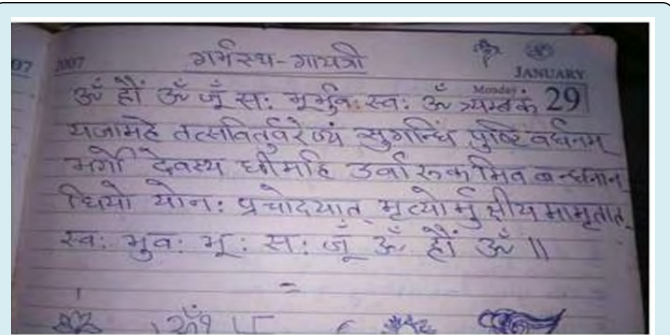 07 2007 गर्भस्थ-गायत्री JANUARY
Monday 29
ॐ हौं ॐ जूँ सः भूर्भुवः स्वः ॐ त्र्यम्बकं
यजामहे तत्सवितुर्वरेण्यं सुगन्धिं पुष्टिवर्धनम्
भर्गो देवस्य धीमहि उर्वारुकमिव बन्धनान्
धियो योनः प्रचोदयात् मृत्योर्मुक्षीय मामृतात्
स्वः भुवः भूः सः जूँ ॐ हौं ॐ ॥